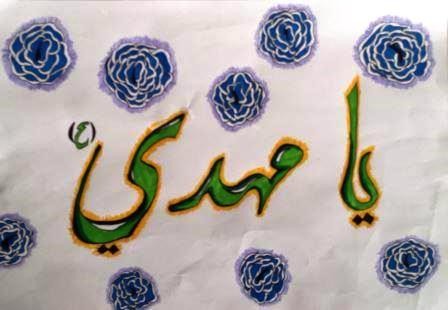 يا مهدي (ع)